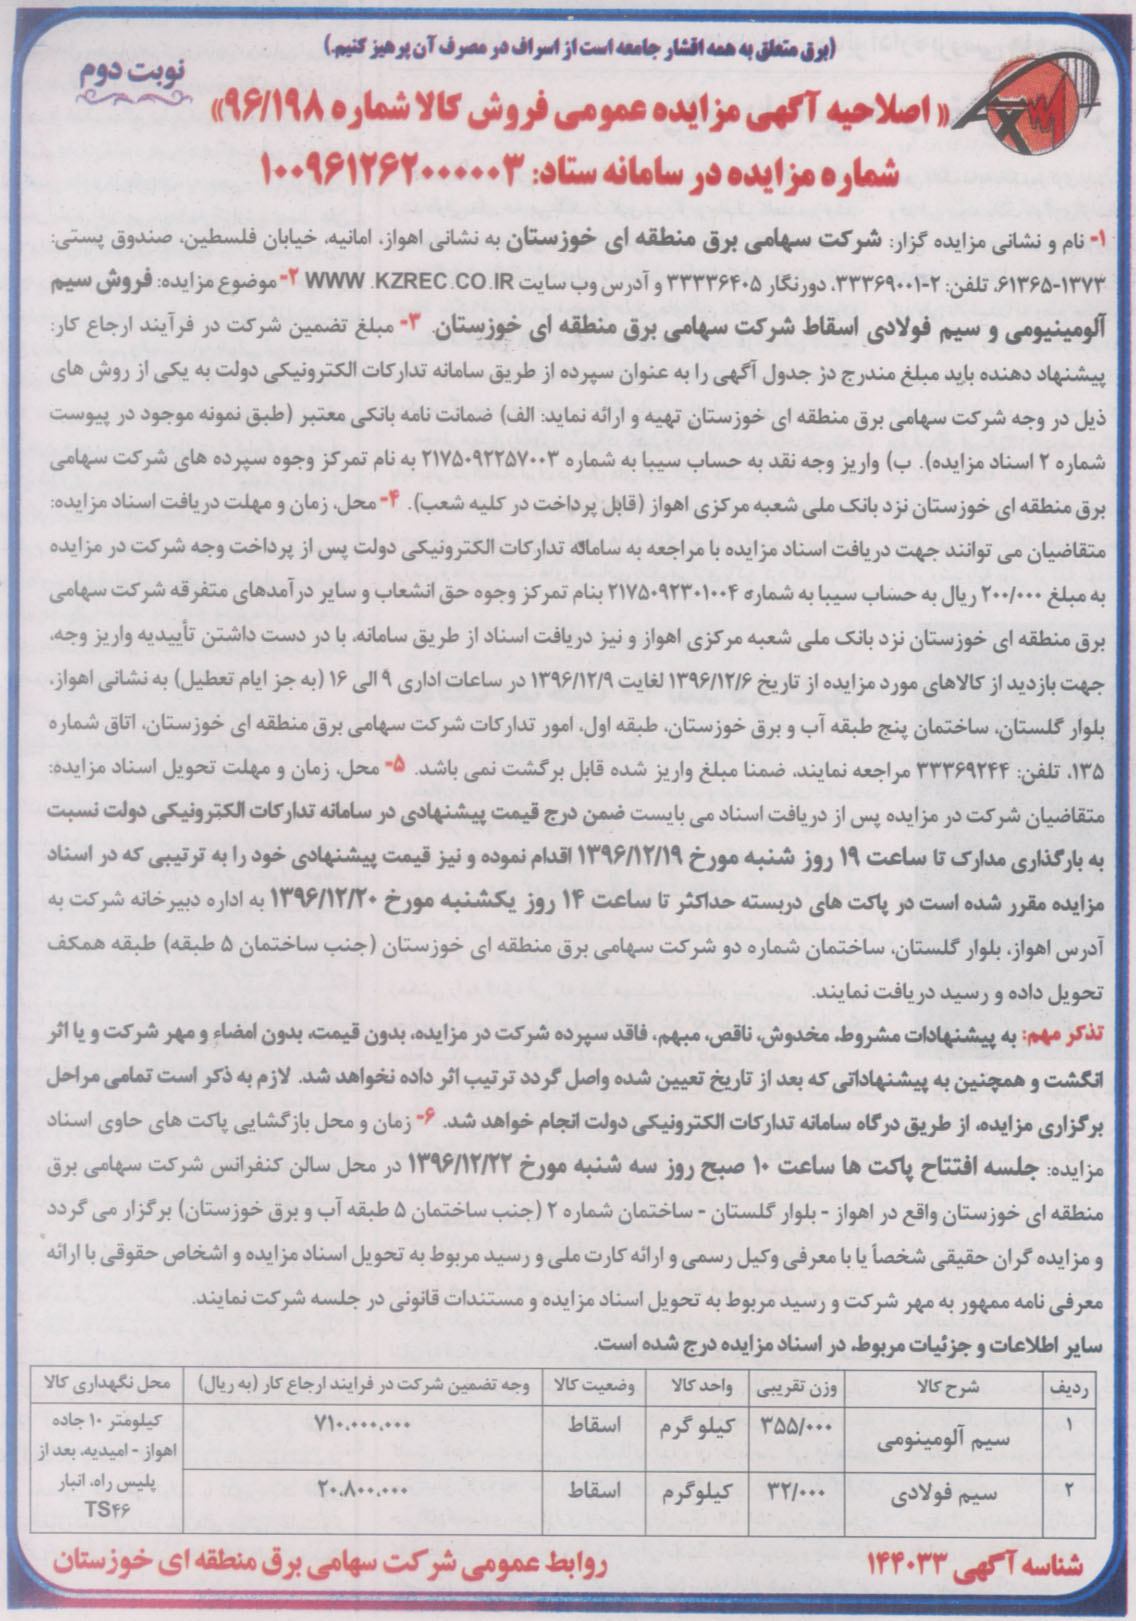 (برق متعلق به همه اقشار جامعه است از اسراف در مصرف آن پرهیز کنیم.)
نوبت دوم
« اصلاحیه آگهی مزایده عمومی فروش کالا شماره ۹۶/۱۹۸»
شماره مزایده در سامانه ستاد: ۱۰۰۹۶۱۲۶۲۰۰۰۰۰۳
۱- نام و نشانی مزایده گزار: شرکت سهامی برق منطقه ای خوزستان به نشانی اهواز، امانیه، خیابان فلسطین، صندوق پستی:
۶۱۳۶۵-۱۳۷۳، تلفن: ۲-۳۳۳۶۹۰۰۱، دورنگار ۳۳۳۳۶۴۰۵ و آدرس وب سایت WWW .KZREC.CO.IR ۲- موضوع مزایده: فروش سیم
آلومینیومی و سیم فولادی اسقاط شرکت سهامی برق منطقه ای خوزستان. ۳- مبلغ تضمین شرکت در فرآیند ارجاع کار:
پیشنهاد دهنده باید مبلغ مندرج در جدول آگهی را به عنوان سپرده از طریق سامانه تدارکات الکترونیکی دولت به یکی از روش های
ذیل در وجه شرکت سهامی برق منطقه ای خوزستان تهیه و ارائه نماید: الف) ضمانت نامه بانکی معتبر (طبق نمونه موجود در پیوست
شماره ۲ اسناد مزایده). ب) واریز وجه نقد به حساب سیبا به شماره ۲۱۷۵۰۹۲۲۵۷۰۰۳ به نام تمرکز وجوه سپرده های شرکت سهامی
برق منطقه ای خوزستان نزد بانک ملی شعبه مرکزی اهواز (قابل پرداخت در کلیه شعب). ۴- محل، زمان و مهلت دریافت اسناد مزایده:
متقاضیان می توانند جهت دریافت اسناد مزایده با مراجعه به سامانه تدارکات الکترونیکی دولت پس از پرداخت وجه شرکت در مزایده
به مبلغ ۲۰۰/۰۰۰ ریال به حساب سیبا به شماره ۲۱۷۵۰۹۲۳۰۱۰۰۴ بنام تمرکز وجوه حق انشعاب و سایر درآمدهای متفرقه شرکت سهامی
برق منطقه ای خوزستان نزد بانک ملی شعبه مرکزی اهواز و نیز دریافت اسناد از طریق سامانه، با در دست داشتن تأییدیه واریز وجه،
جهت بازدید از کالاهای مورد مزایده از تاریخ ۱۳۹۶/۱۲/۶ لغایت ۱۳۹۶/۱۲/۹ در ساعات اداری ۹ الی ۱۶ (به جز ایام تعطیل) به نشانی اهواز،
بلوار گلستان، ساختمان پنج طبقه آب و برق خوزستان، طبقه اول، امور تدارکات شرکت سهامی برق منطقه ای خوزستان، اتاق شماره
۱۳۵، تلفن: ۳۳۳۶۹۲۴۴ مراجعه نمایند، ضمنا مبلغ واریز شده قابل برگشت نمی باشد. ۵- محل، زمان و مهلت تحویل اسناد مزایده:
متقاضیان شرکت در مزایده پس از دریافت اسناد می بایست ضمن درج قیمت پیشنهادی در سامانه تدارکات الکترونیکی دولت نسبت
به بارگذاری مدارک تا ساعت ۱۹ روز شنبه مورخ ۱۳۹۶/۱۲/۱۹ اقدام نموده و نیز قیمت پیشنهادی خود را به ترتیبی که در اسناد
مزایده مقرر شده است در پاکت های دربسته حداکثر تا ساعت ۱۴ روز یکشنبه مورخ ۱۳۹۶/۱۲/۲۰ به اداره دبیرخانه شرکت به
آدرس اهواز، بلوار گلستان، ساختمان شماره دو شرکت سهامی برق منطقه ای خوزستان (جنب ساختمان ۵ طبقه) طبقه همکف
تحویل داده و رسید دریافت نمایند.
تذکر مهم: به پیشنهادات مشروط، مخدوش، ناقص، مبهم، فاقد سپرده شرکت در مزایده، بدون قیمت، بدون امضاء و مهر شرکت و یا اثر
انگشت و همچنین به پیشنهاداتی که بعد از تاریخ تعیین شده واصل گردد ترتیب اثر داده نخواهد شد. لازم به ذکر است تمامی مراحل
برگزاری مزایده، از طریق درگاه سامانه تدارکات الکترونیکی دولت انجام خواهد شد. ۶- زمان و محل بازگشایی پاکت های حاوی اسناد
مزایده: جلسه افتتاح پاکت ها ساعت ۱۰ صبح روز سه شنبه مورخ ۱۳۹۶/۱۲/۲۲ در محل سالن کنفرانس شرکت سهامی برق
منطقه ای خوزستان واقع در اهواز - بلوار گلستان - ساختمان شماره ۲ (جنب ساختمان ۵ طبقه آب و برق خوزستان) برگزار می گردد
و مزایده گران حقیقی شخصاً یا با معرفی وکیل رسمی و ارائه کارت ملی و رسید مربوط به تحویل اسناد مزایده و اشخاص حقوقی با ارائه
معرفی نامه ممهور به مهر شرکت و رسید مربوط به تحویل اسناد مزایده و مستندات قانونی در جلسه شرکت نمایند.
سایر اطلاعات و جزئیات مربوط، در اسناد مزایده درج شده است.
ردیف شرح کالا وزن تقریبی واحد کالا وضعیت کالا وجه تضمین شرکت در فرایند ارجاع کار (به ریال) محل نگهداری کالا
۱ سیم آلومینومی ۳۵۵/۰۰۰ کیلو گرم اسقاط ۷۱۰،۰۰۰،۰۰۰
۲ سیم فولادی ۳۲/۰۰۰ کیلوگرم اسقاط ۲۰،۸۰۰،۰۰۰
کیلومتر ۱۰ جاده
اهواز - امیدیه، بعد از
پلیس راه، انبار
TS۴۶
شناسه آگهی ۱۴۴۰۳۳
روابط عمومی شرکت سهامی برق منطقه ای خوزستان